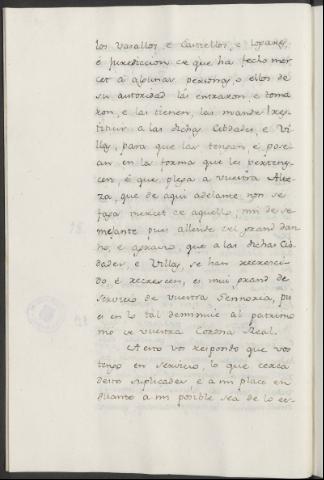 los Vasallos, e Castillos, e logares,
é Jurediccion de que ha fecho mer
cet á algunas personas, o ellos de
su autoridad las entraron, e toma
ron, e las tienen, las mande res
tituir a las dichas Cibdades, e Vi
llas, para que las tengan, é pose
an en la forma que les pertenez
cen, é que plega a vuestra Alte
za, que de aqui adelante non se
faga mercet de aquello, nin de se
mejante pues allende del grand dan
no, é agravio, que a las dichas Cib
dades, e Villas, se han recresci
do, é recrescen, es mui grand de
servicio de vuestra Sennoria, pu
es en lo tal deminuie al patrimo
nio de vuestra Corona Real.
A esto vos respondo que vos
tengo en servicio, lo que cerca
desto suplicades, e a mi place en
quanto a mi posible sea de lo es-